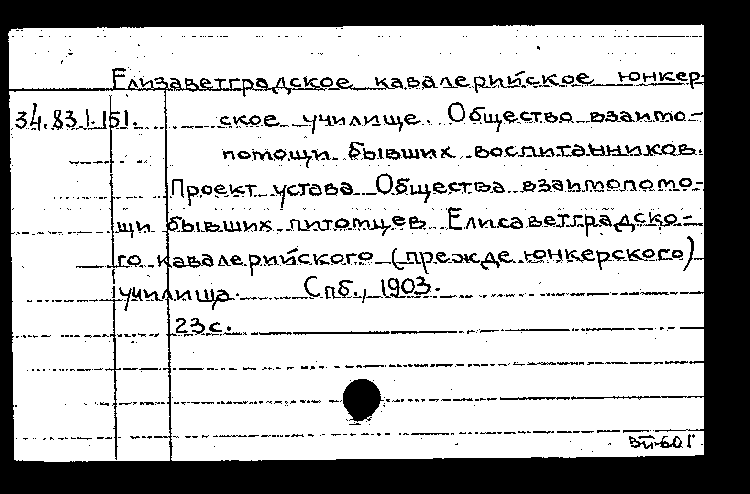 Елизаветградское кавалерийское юнкер-
34.83.1.151. ское училище. Общество взаимо-
помощи бывших воспитанников.
Проект устава Общества взаимопомо-
щи бывших питомцев Елисаветградско-
го кавалерийского (прежде юнкерского)
училища. Спб., 1903.
23 с.